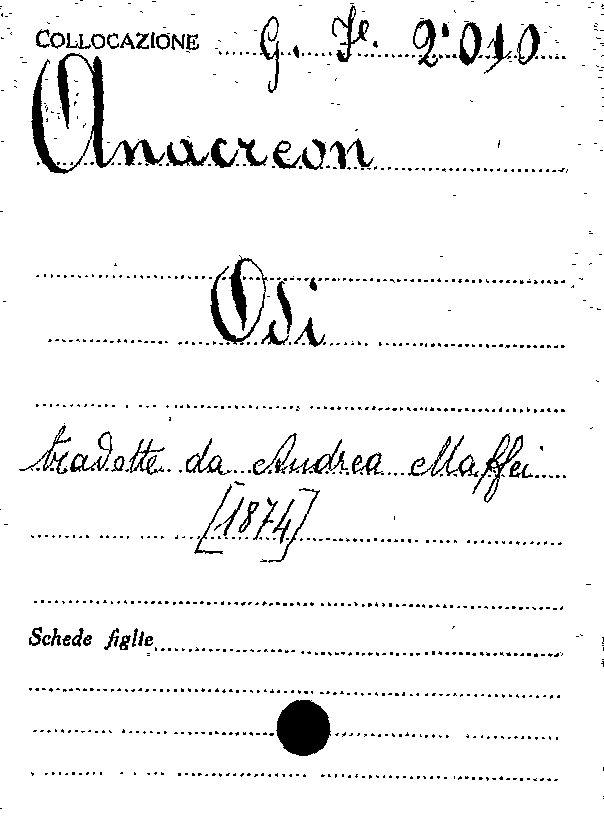 COLLOCAZIONE G. Fe. 2°010
Anacreon
Odi
tradotte da Andrea Maffei
[1874]
Schede figlie